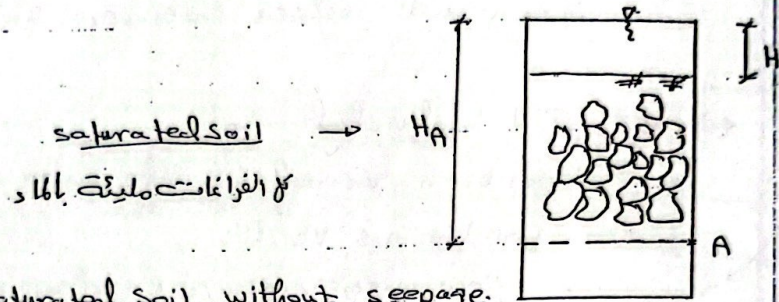 H
saturated soil → HA
كل الفراغات مليئة بالماء
A
saturated soil without seepage.